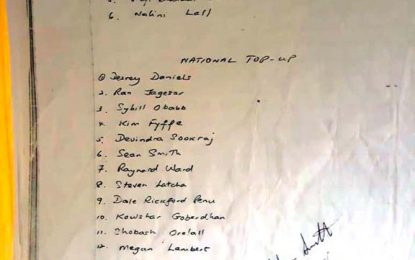 6. Nalini Lall
NATIONAL TOP-UP
① Desrey Daniels
2. Ran Jagesar
3. Sybill Obabb
4. Kim Fyffe
5. Devindra Sookraj
6. Sean Smith
7. Raynard Ward
8. Steven Latcha
9. Dale Rickford Penu
10. Kawshar Goberdhan
11. Shobash Orelall
12. Megan Lambert